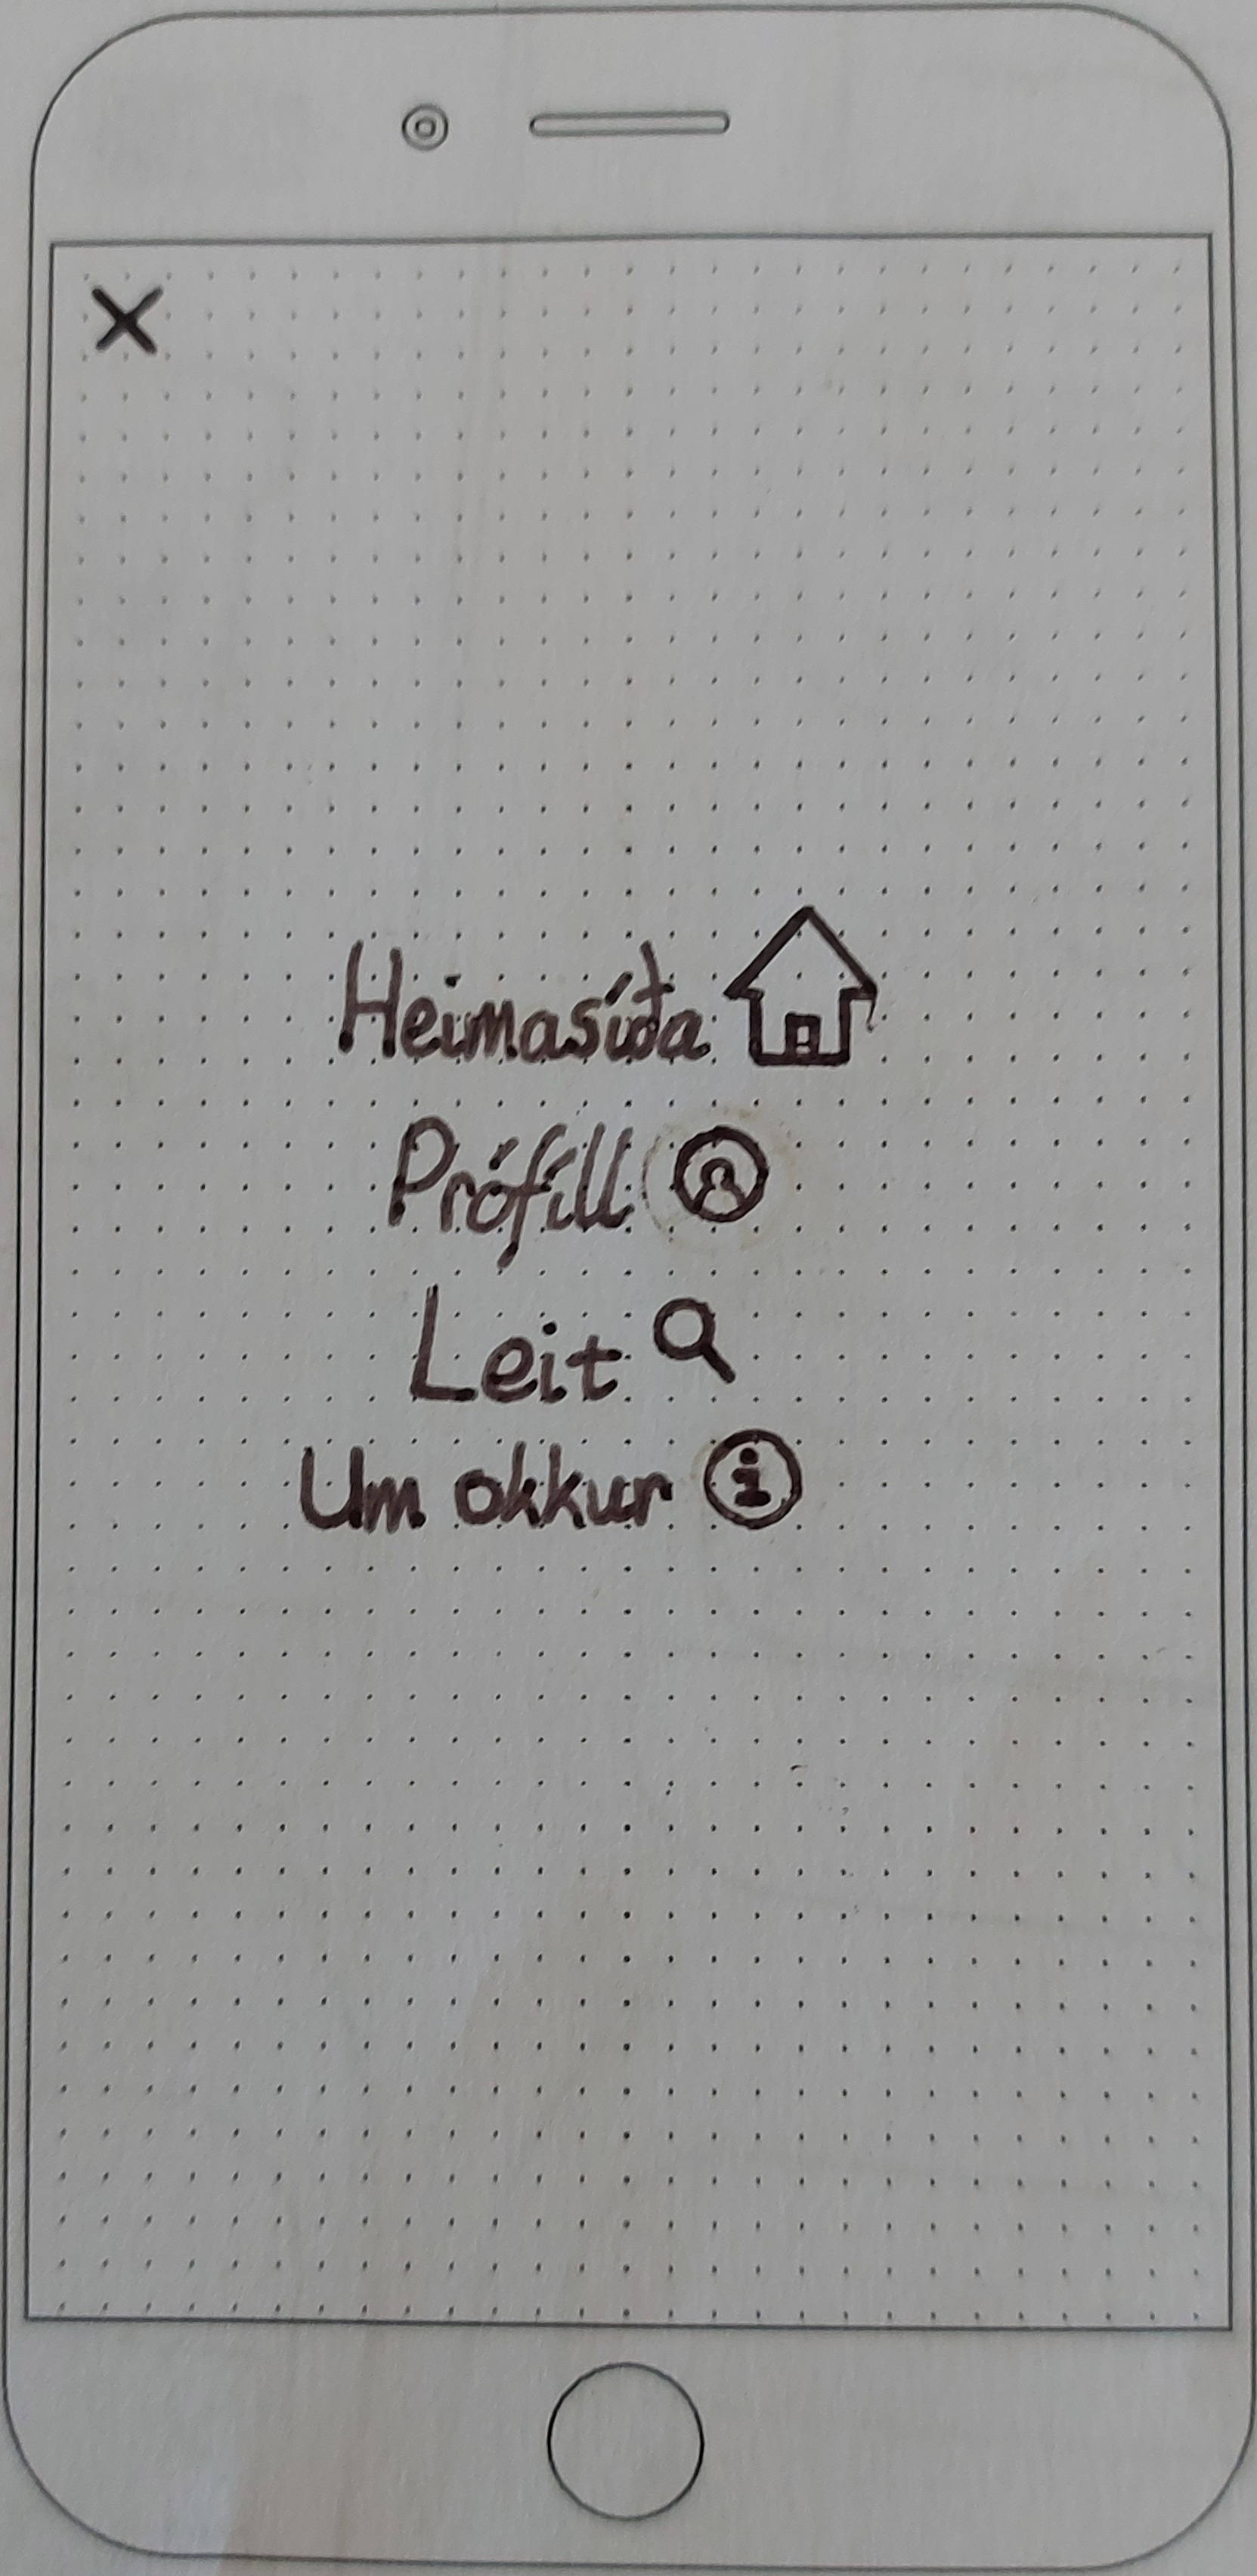 X
Heimasíða
Prófíll
Leit
Um okkur i